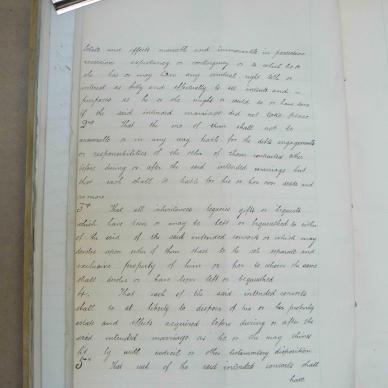 Estate and effects movable and immovable in possession
reversion expectancy or contingency or to which he or
she has or may have any vested right title or
interest as fully and effectually to all intents and
purposes as he or she might or could so or have done
if the said intended marriage did not take place
2nd That the one of them shall not be
answerable or in any way liable for the debts engagements
or responsibilities of the other of them contracted either
before during or after the said intended marriage but
that each shall be liable for his or her own debts and
no more
3rd That all inheritances legacies gifts or bequests
which have been or may be left or bequeathed to either
of the said of the said intended consorts or which may
devolve upon either of them shall be the sole separate and
exclusive property of him or her to whom the same
shall devolve or have been left or bequeathed
4. That each of the said intended consorts
shall be at liberty to dispose of his or her property
estate and effects acquired before during or after the
said intended marriage as he or she may think
fit by will codicil or other testamentary disposition
5th That each of the said intended consorts shall
have